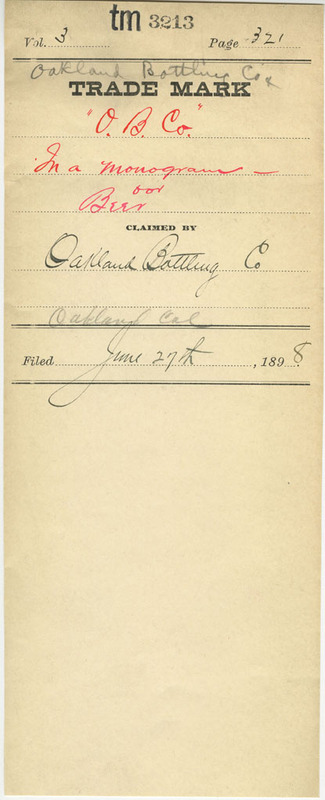 tm 3213
Vol. 3 Page 321
Oakland Bottling Co
TRADE MARK
"O. B. Co."
In a monogram —
Beer
CLAIMED BY
Oakland Bottling Co
Oakland Cal
Filed June 27th, 1898.